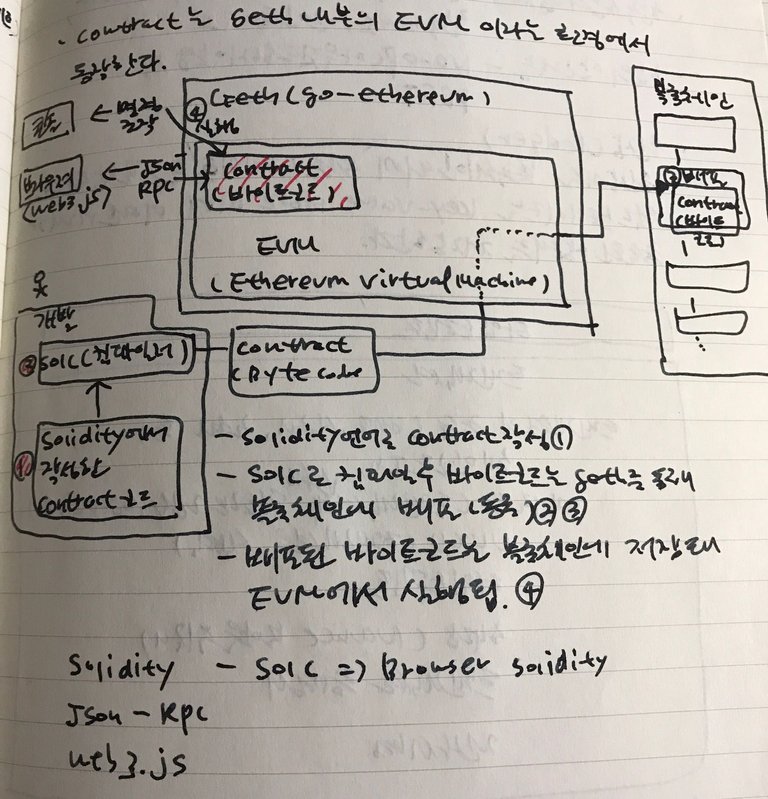 . contract는 geth 내부의 EVM 이라는 환경에서
동작한다.
콘솔
← 명령
조작
④
실행
Geeth (go-ethereum)
블록체인
브라우져
(web3.js)
← JSon
RPC
contract
(바이트코드)
③ 배포
contract
(바이트
코드)
EVM
(Ethereum Virtual Machine)
개발
② SolC (컴파일러)
contract
(Byte code
① Solidity에서
작성한
Contract 코드
- Solidity언어로 contract작성 ①
- SolC로 컴파일 후 바이트코드는 geth를 통해
블록체인에 배포 ② ③
- 배포된 바이트코드는 블록체인에 저장돼
EVM에서 실행됨. ④
Solidity - SolC => Browser solidity
JSon - RPC
web3.js